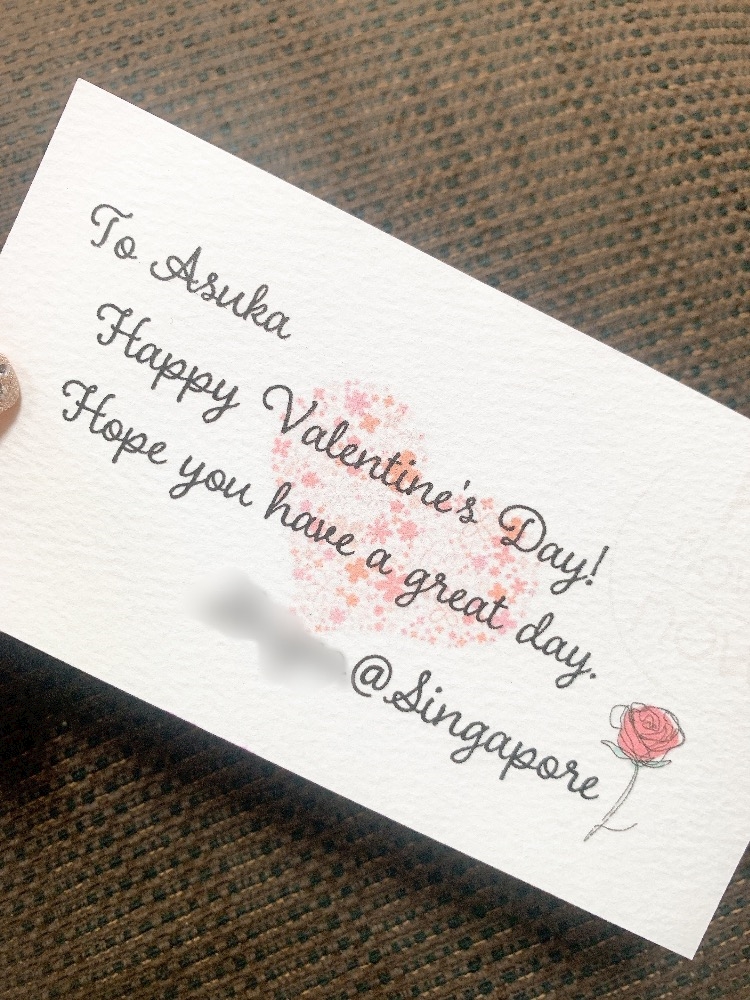 To Asuka
Happy Valentine's Day!
Hope you have a great day.
@Singapore